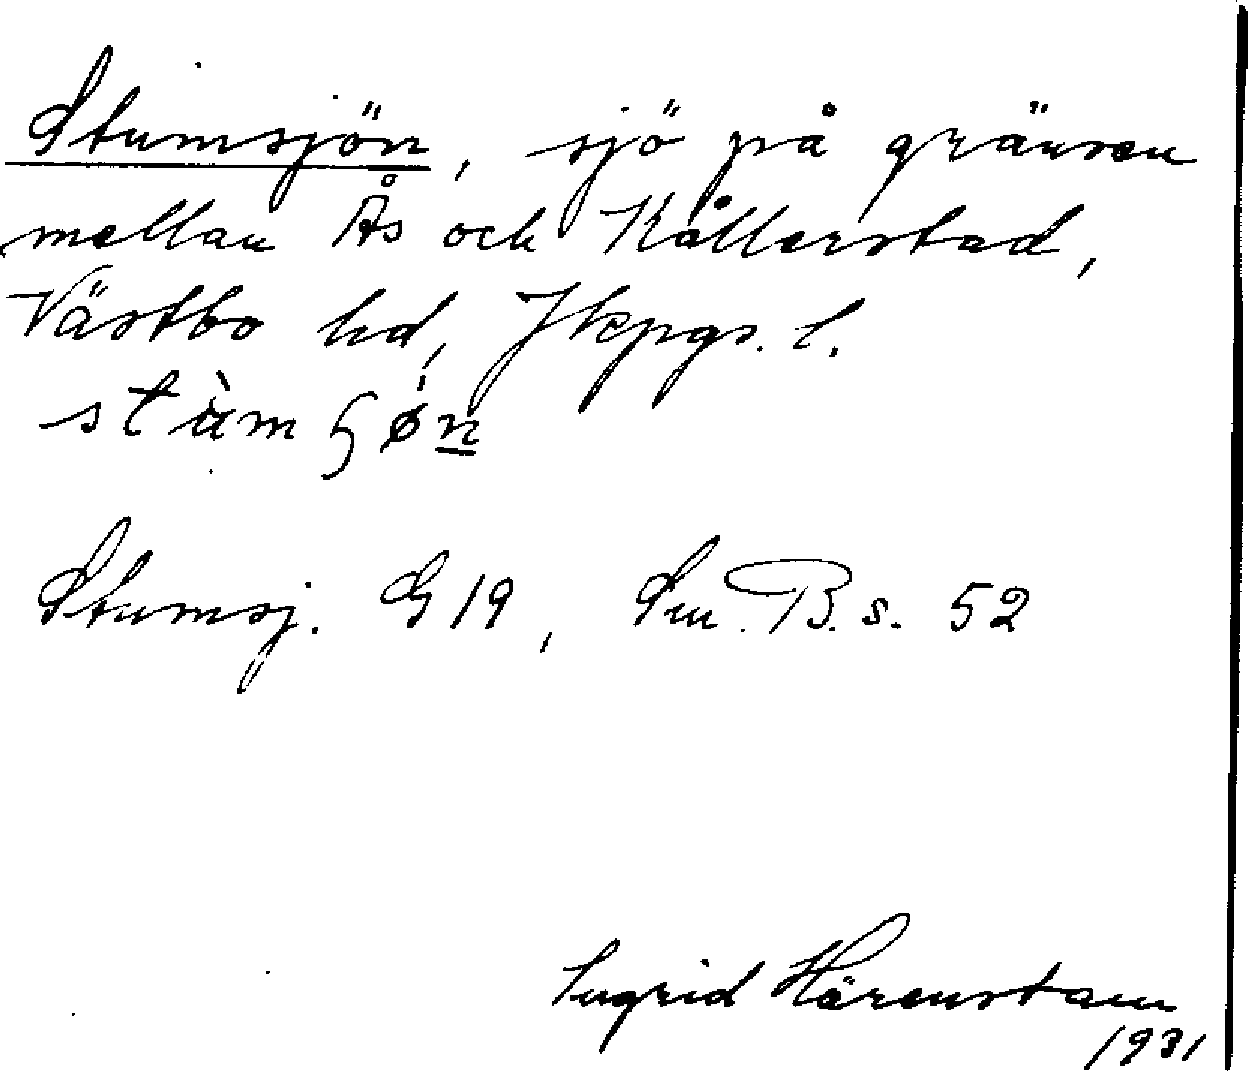 Stumsjön, sjö på gränsen
mellan Ås och Kållerstad,
Västbo hd, Jkpgs. l.
stùmɧǿn̲
Stumsj. G 19, Sm. B. s. 52
Ingrid Härenstam
1931